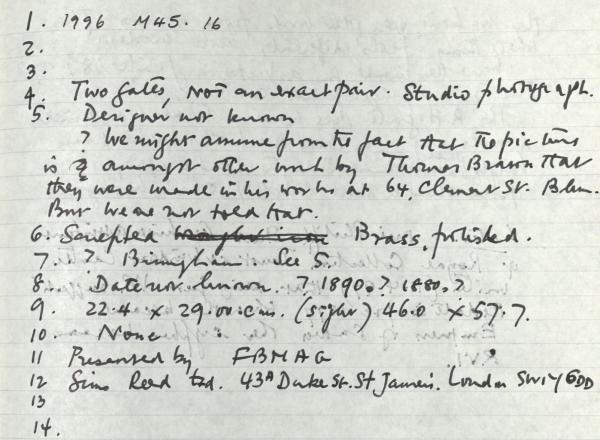 1. 1996 M45. 16
2.
3.
4. Two gates, not an exact pair. Studio photograph.
5. Designer not known
? We might assume from the fact that the picture
is amongst other work by Thomas Brason that
they were made in his works at 64, Clement St. B'ham.
But we are not told that.
6. Sculpted wrought iron Brass, polished.
7. ? Birmingham. See 5.
8. Date not known. ? 1890s? 1880s?
9. 22.4 x 29.00 cms. (sight) 46.0 x 57.7.
10. None
11 Presented by FBMAG
12 Sims Reed Ltd. 43A Duke St. St James's. London SW1Y 6DD
13
14.